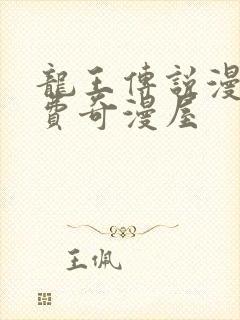 龍王傳說漫
費奇漫屋
王佩